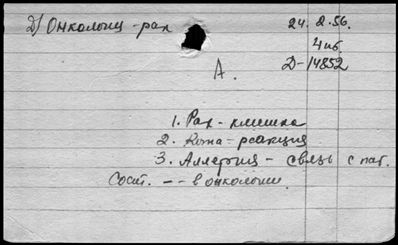 Д) Онкология - рак
24. 2. 56.
4 иб.
Д-14852
А.
1. Рак - клиника
2. Кожа - реакция
3. Аллергия - связь с пат.
Сост. -- в онкологии.